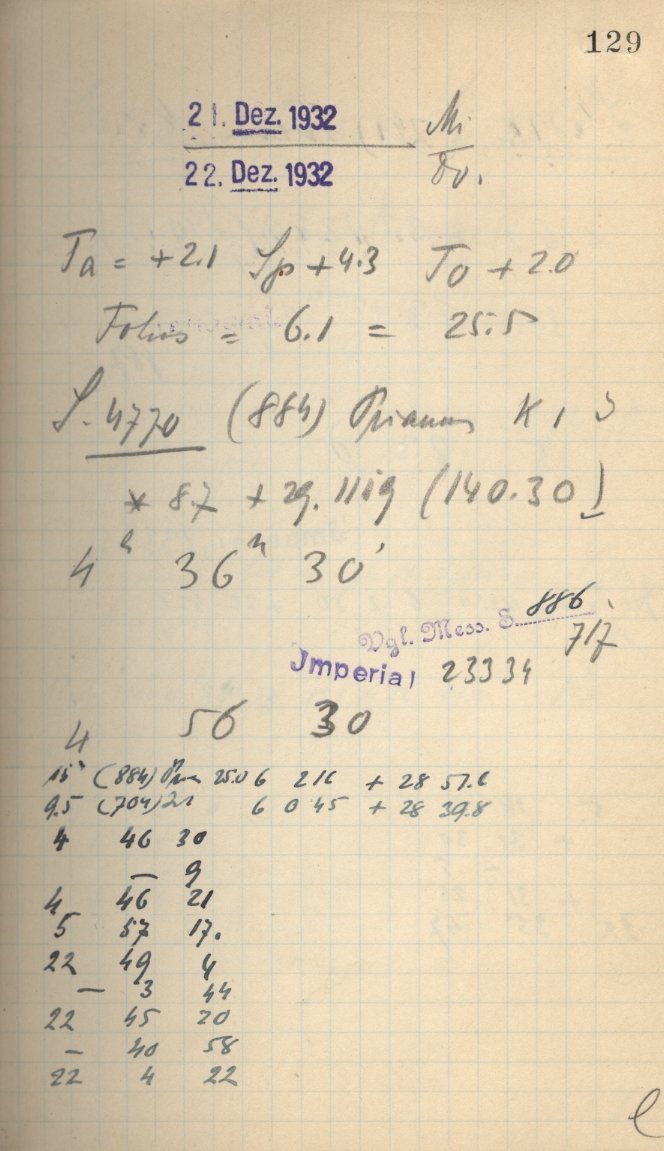 129
21. Dez. 1932 Mi
22. Dez. 1932 Do.
Ta = +2.1 Sp +4.3 To +2.0
Fokus = 6.1 = 25.5
S. 4770 (884) Priamus K 1
* 8.7 + 29. 1119 (140.30)
4h 36m 30s
Vgl. Mess. S. 886
717
Imperial 23334
4 56 30
15 (884) Pria 25.0 6 2 16 + 28 57.6
9.5 (704) 21 6 0 45 + 28 39.8
4 46 30
— 9
4 46 21
5 57 17.
22 49 4
— 3 44
22 45 20
— 40 58
22 4 22